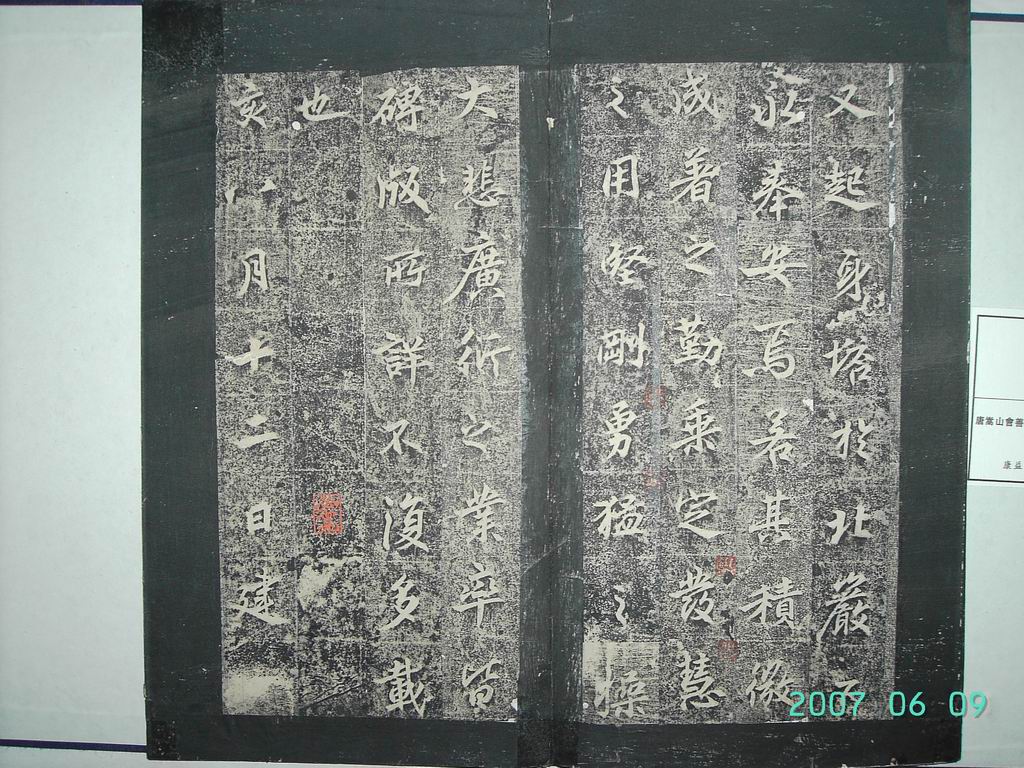 又起身塔於北巖下
永奉安焉若其積微
成著之勤乘定發慧
之用堅剛勇猛之操
大悲廣衍之業卒皆
碑版所詳不復多載
也
亥八月十二日建
唐嵩山會善
康益
2007 06 09